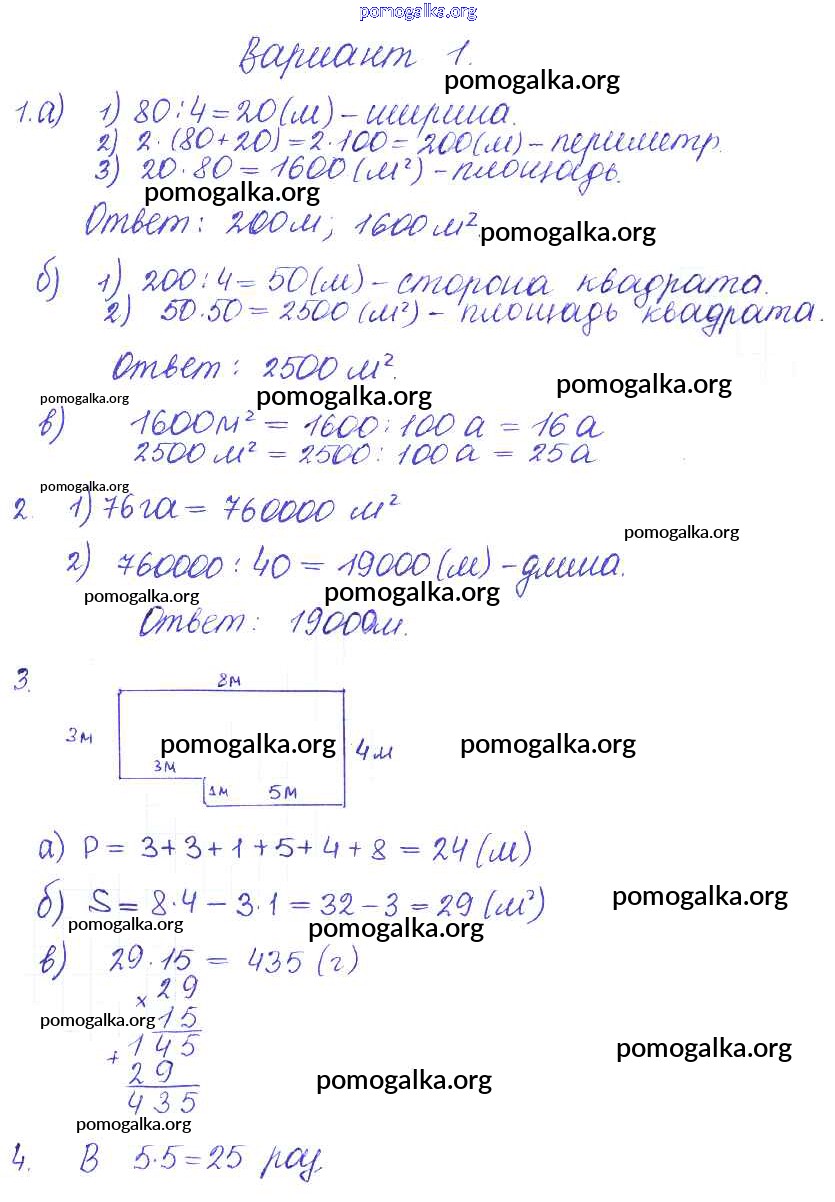 pomogalka.org
Вариант 1.
pomogalka.org
1.а) 1) 80:4=20(м)-ширина.
2) 2·(80+20)=2·100=200(м)-периметр.
3) 20·80=1600(м²)-площадь.
pomogalka.org
Ответ: 200м; 1600м².
pomogalka.org
б) 1) 200:4=50(м)-сторона квадрата.
2) 50·50=2500(м²)-площадь квадрата.
Ответ: 2500м².
pomogalka.org
pomogalka.org
pomogalka.org
в) 1600м²=1600:100а=16а
2500м²=2500:100а=25а
pomogalka.org
2. 1) 76га=760000 м²
pomogalka.org
2) 760000:40=19000(м)-длина.
pomogalka.org
pomogalka.org
Ответ: 19000м.
3.
8м
3м
pomogalka.org
pomogalka.org
4м
3м
1м
5м
а) P=3+3+1+5+4+8=24(м)
б) S=8·4-3·1=32-3=29(м²)
pomogalka.org
pomogalka.org
pomogalka.org
в) 29·15=435(г)
× 29
15
pomogalka.org
+ 145
29
435
pomogalka.org
pomogalka.org
pomogalka.org
4. В 5·5=25 раз